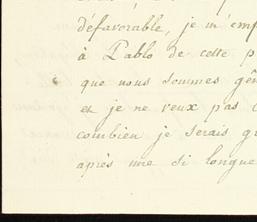 défavorable, je m'emp
à Pablo de cette p
que nous sommes gên
et je ne veux pas
combien je serais gr
après une si longue